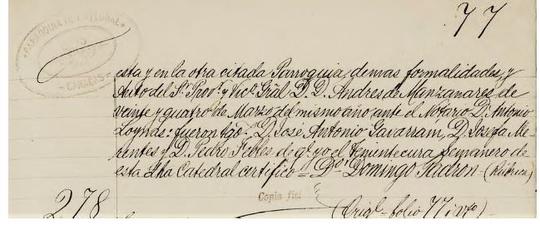 77
PARROQUIA CATEDRAL
CARACAS
esta y en la otra citada Parroquia, demas formalidades, y
Auto del Sr. Provr. y Vicº Gral D. D. Andres de Manzanares de
veinte y quatro de Marzo del mismo año ante el Notario D. Antonio
fueron tgos. D. José Antonio Savarram, D. Josefa
y D. Pedro Febles de q. yo el Teniente cura semanero de
esta Sta Catedral certifico = Br. Domingo (Rúbrica)
Copia fiel
278 (Origl. folio 77 i vto)